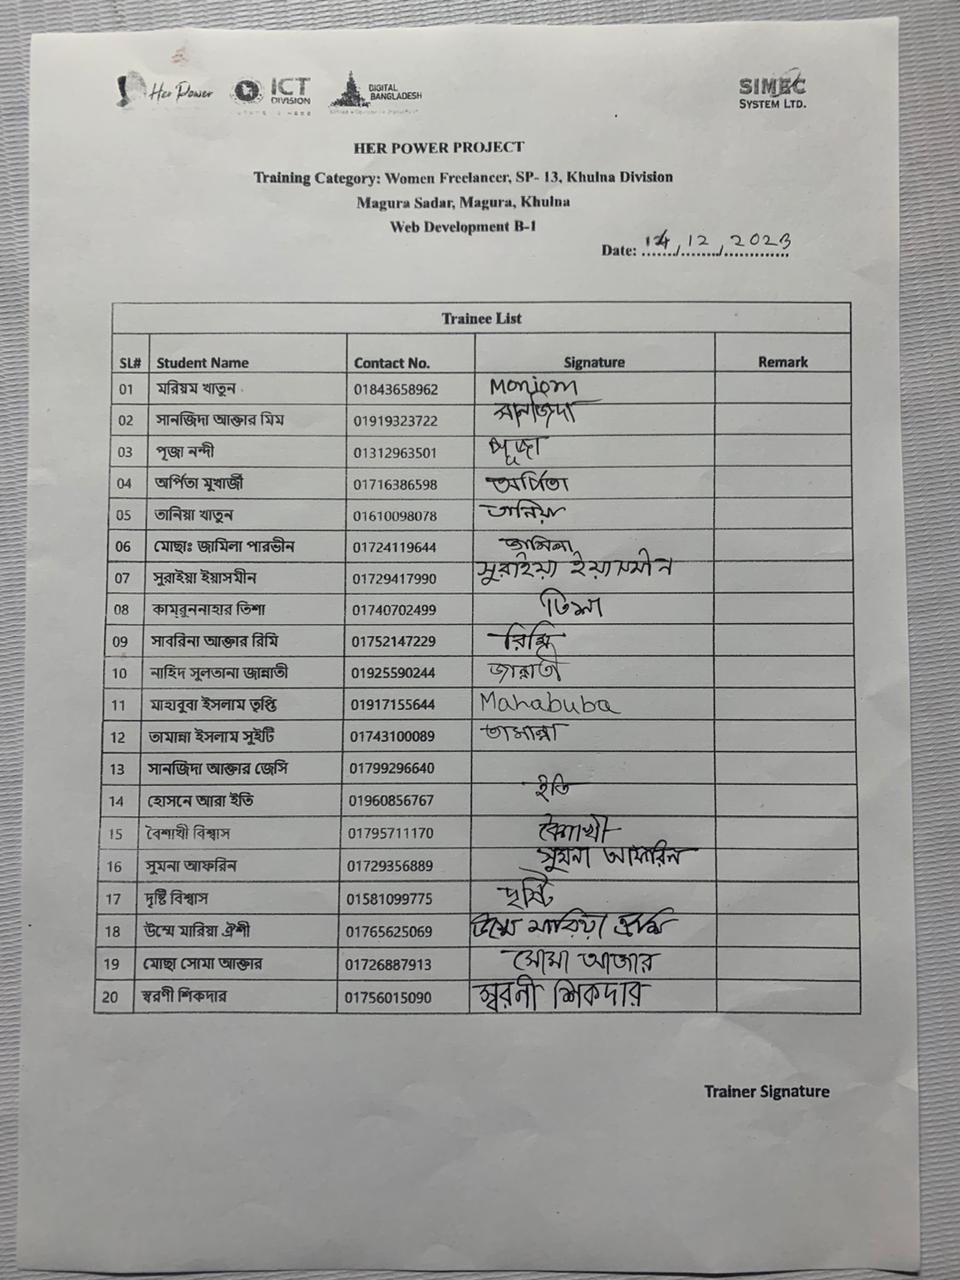 Her Power
ICT
DIVISION
DIGITAL
BANGLADESH
SIMEC
SYSTEM LTD.
HER POWER PROJECT
Training Category: Women Freelancer, SP- 13, Khulna Division
Magura Sadar, Magura, Khulna
Web Development B-1
Date: 14/12/2023
Trainee List
SL# Student Name Contact No. Signature Remark
01 মরিয়ম খাতুন 01843658962 Moriom
02 সানজিদা আক্তার মিম 01919323722 সানজিদা
03 পূজা নন্দী 01312963501 পূজা
04 অর্পিতা মুখার্জী 01716386598 অর্পিতা
05 তানিয়া খাতুন 01610098078 তানিয়া
06 মোছাঃ জামিলা পারভীন 01724119644 জামিলা
07 সুরাইয়া ইয়াসমীন 01729417990 সুরাইয়া ইয়াসমীন
08 কামরুননাহার তিশা 01740702499 তিশা
09 সাবরিনা আক্তার রিমি 01752147229 রিমি
10 নাহিদ সুলতানা জান্নাতী 01925590244 জান্নাতী
11 মাহাবুবা ইসলাম তৃপ্তি 01917155644 Mahabuba
12 তামান্না ইসলাম সুইটি 01743100089 তামান্না
13 সানজিদা আক্তার জেসি 01799296640
14 হোসনে আরা ইতি 01960856767 ইতি
15 বৈশাখী বিশ্বাস 01795711170 বৈশাখী
16 সুমনা আফরিন 01729356889 সুমনা আফরিন
17 দৃষ্টি বিশ্বাস 01581099775 দৃষ্টি
18 উম্মে মারিয়া ঐশী 01765625069 উম্মে মারিয়া ঐশি
19 মোছা সোমা আক্তার 01726887913 সোমা আক্তার
20 স্বরণী শিকদার 01756015090 স্বরণী শিকদার
Trainer Signature